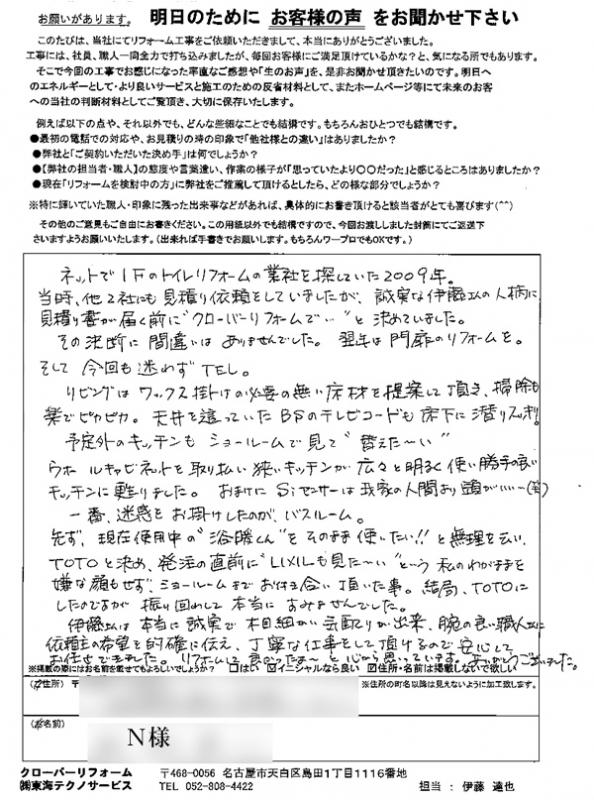 お願いがあります。 明日のために お客様の声 をお聞かせ下さい
このたびは、当社にてリフォーム工事をご依頼いただきまして、本当にありがとうございました。
工事には、社員、職人一同全力で打ち込みましたが、毎回お客様にご満足頂けているかな?と、気になる所でもあります。
そこで今回の工事でお感じになった率直なご感想や「生のお声」を、是非お聞かせ頂きたいのです。明日へ
のエネルギーとして・より良いサービスと施工のための反省材料として、またホームページ等にて未来のお客
への当社の判断材料としてご覧頂き、大切に保存いたします。
例えば以下の点や、それ以外でも、どんな些細なことでも結構です。もちろんおひとつでも結構です。
●最初の電話での対応や、お見積りの時の印象で「他社様との違い」はありましたか?
●弊社と「ご契約いただいた決め手」は何でしょうか?
●【弊社の担当者・職人】の態度や言葉遣い、作業の様子が「思っていたより〇〇だった」と感じるところはありましたか?
●現在「リフォームを検討中の方」に弊社をご推薦して頂けるとしたら、どの様な部分でしょうか?
※特に輝いていた職人・印象に残った出来事などがあれば、具体的にお書き頂けると該当者がとても喜びます(^^)
その他のご意見もご自由にお書きください。この用紙以外でも結構ですので、今回お渡ししました封筒にてご返送下
さいますようお願いいたします。(出来れば手書きでお願いします。もちろんワープロでもOKです。)
ネットで1Fのトイレリフォームの業社を探していた2009年。
当時、他2社にも見積り依頼をしていましたが、誠実な伊藤さんの人柄に
見積り書が届く前に"クローバーリフォームで…"と決めていました。
その決断に間違いはありませんでした。翌年は門扉のリフォームを。
そして今回も迷わずTEL。
リビングはワックス掛けの必要の無い床材を提案して頂き、掃除も
楽でピカピカ。天井を這っていたBSのテレビコードも床下に潜りスッキリ。
予定外のキッチンもショールームで見て"替えた〜い"
ウォールキャビネットを取り払い狭いキッチンが広々と明るく使い勝手の良い
キッチンに甦りました。おまけにSiセンサーは我家の人間より頭がいい…(笑)
一番、迷惑をお掛けしたのが、バスルーム。
先ず、現在使用中の"浴勝くん"をそのまま使いたい!!と無理を云い、
TOTOと決め、発注の直前に"LIXILも見た〜い"という私のわがままを
嫌な顔もせず、ショールームまでお付き合い頂いた事。結局、TOTOに
したのですが振り回わして本当にすみませんでした。
伊藤さんは本当に誠実で木目細かい気配りが出来、腕の良い職人さんに
依頼主の希望を的確に伝え、丁寧な仕事をして頂けるので安心して
お任せできました。リフォームして良かったぁ〜と心から思っています。ありがとうございました。
※掲載の際にはお名前を載せてもよろしいでしょうか? □はい ☑イニシャルなら良い ☑住所・名前は掲載しないで欲しい
(ご住所) 〒 ※住所の町名以降は見えないように加工致します。
(お名前)
N様
クローバーリフォーム 〒468-0056 名古屋市天白区島田1丁目1116番地
㈱東海テクノサービス TEL 052-808-4422 担当: 伊藤 達也